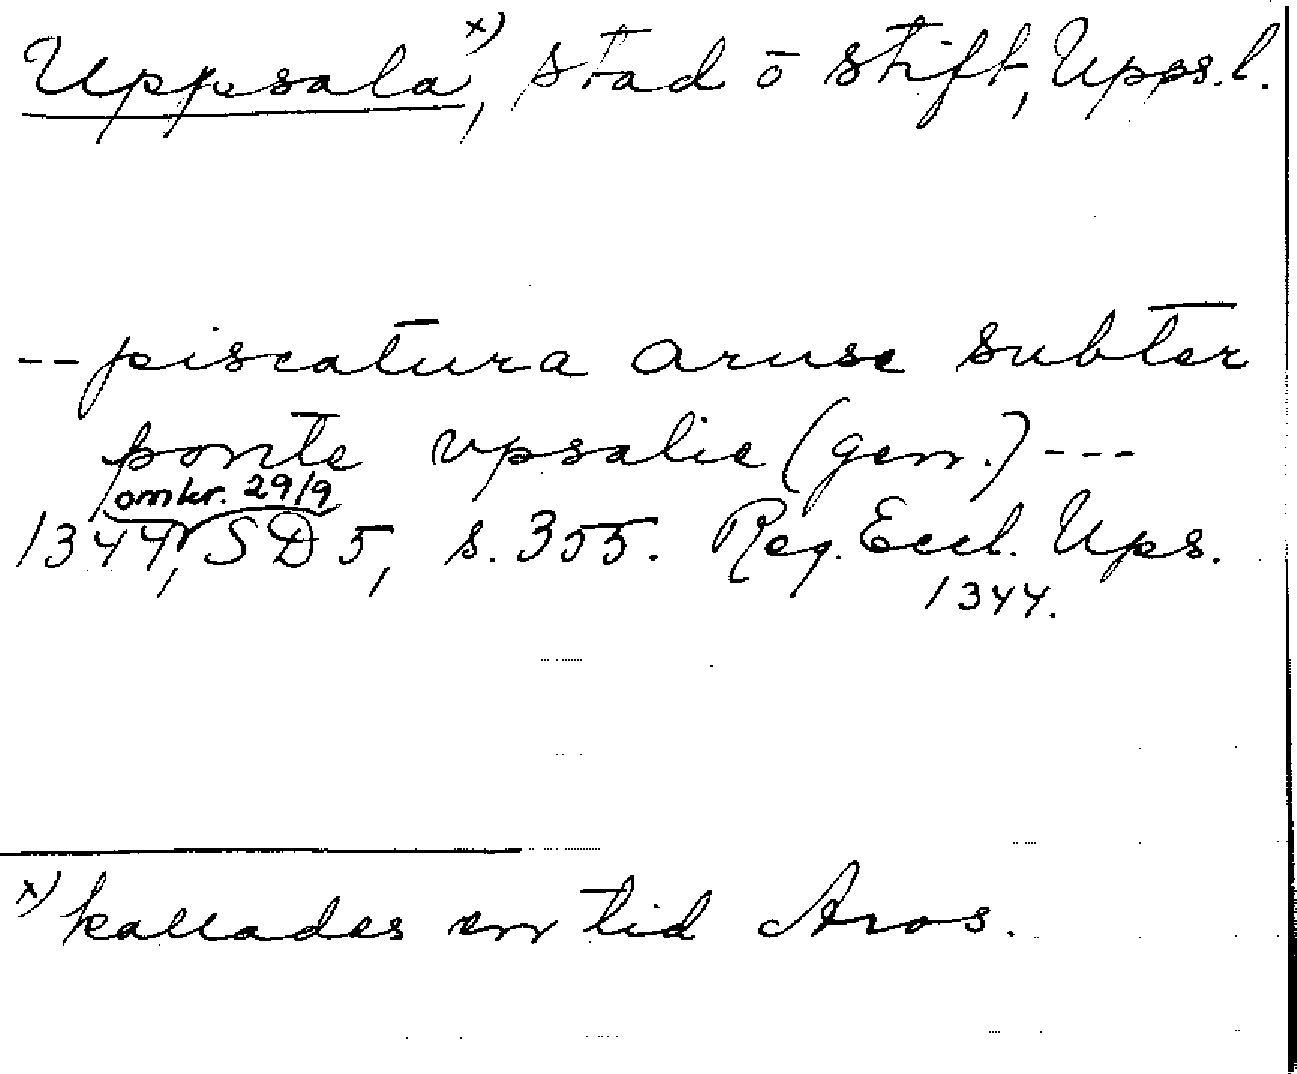 Uppsala x), stad ō stift, Upps.l.
-- piscatura aruse subter
ponte vpsalie (gen.) ---
omkr. 29/9
1344, SD 5, s. 355. Reg. Eccl. Ups.
1344.
x) kallades en tid Aros.